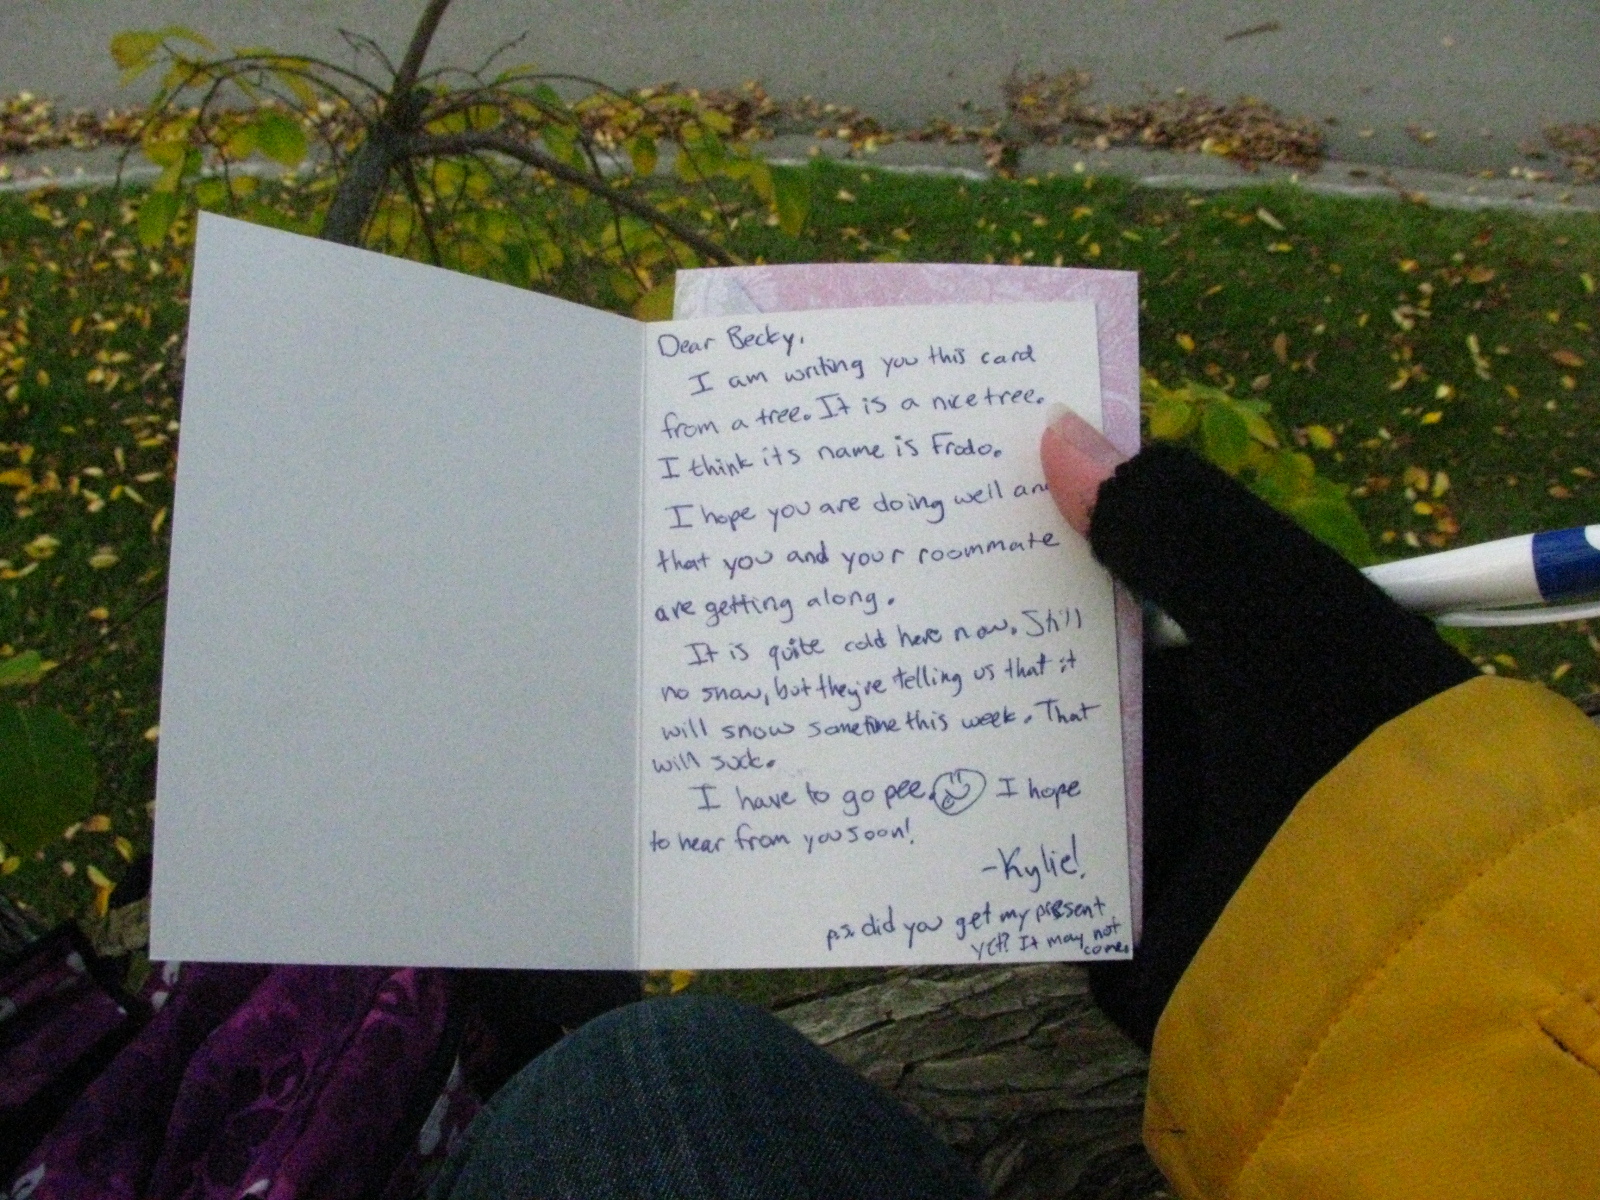 Dear Becky,
I am writing you this card
from a tree. It is a nice tree.
I think its name is Frodo.
I hope you are doing well and
that you and your roommate
are getting along.
It is quite cold here now. Still
no snow, but they're telling us that it
will snow sometime this week. That
will suck.
I have to go pee. I hope
to hear from you soon!
-Kylie!
p.s. did you get my present
yet? It may not
come.